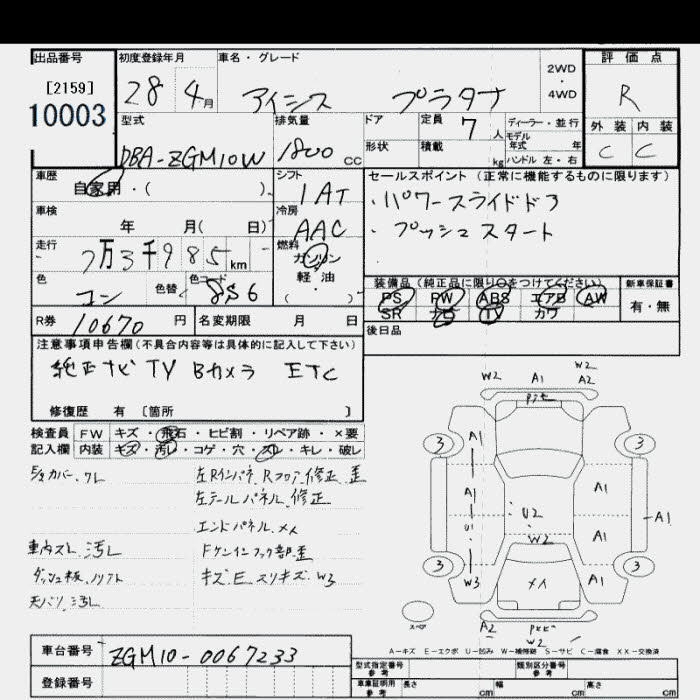 出品番号
[2159]
10003
初度登録年月
28 4月
車名・グレード
アイシス プラタナ
2WD
・
4WD
評価点
R
外装 内装
C C
型式
DBA-ZGM10W
排気量
1800 CC
ドア
形状
定員 7人
積載 kg
ディーラー・並行
モデル
年式 年
ハンドル 左・右
車歴
自家用・( )
車検
年 月( 日)
走行
7万3千985 km
色
コン
色替
色コード
8S6
シフト
1AT
冷房
AAC
燃料
ガソリン
軽・油
( )
セールスポイント (正常に機能するものに限ります)
・パワースライドドア
・プッシュスタート
装備品(純正品に限り○をつけてください)
PS PW ABS エアB AW
SR ナビ TV カワ
新車保証書
有・無
後日品
R券 10670円
名変期限 月 日
注意事項申告欄(不具合内容等は具体的に記入して下さい)
純正ナビ TV Bカメラ ETC
修復歴 有 [箇所 ]
検査員 FW キズ・飛石・ヒビ割・リペア跡・×要
記入欄 内装 キズ・汚レ・コゲ・穴・スレ・キレ・破レ
左Rインパネ Rフロア 修正 歪
左テールパネル 修正
エンドパネル メイ
車内スレ 汚レ
天バリ 汚レ
キズ E スリキズ W3
W2 A1 W2
A2
3 A1 3
A1 A1
U1 U2 A1 A1
W2
3 W3 A1 3
スペア
A2
W2
A-キズ E-エクボ U-凹み W-補修跡 S-サビ C-腐食 XX-交換済
車台番号 ZGM10-0067233
登録番号
型式指定番号
参考
類別区分番号
参考
車庫証明用
参考
長さ cm 幅 cm 高さ cm